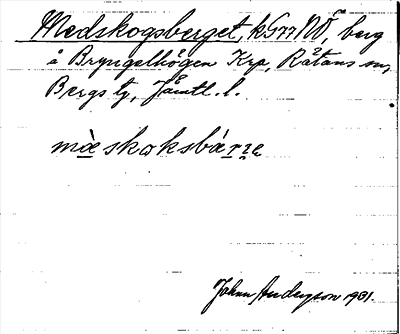 Medskogsberget, k G77 NÖ, berg
å Bryngelhögen Krp, Rätans sn,
Bergs tg, Jämtl. l.
màskoksbárʒe
Johan Anderson 1931.